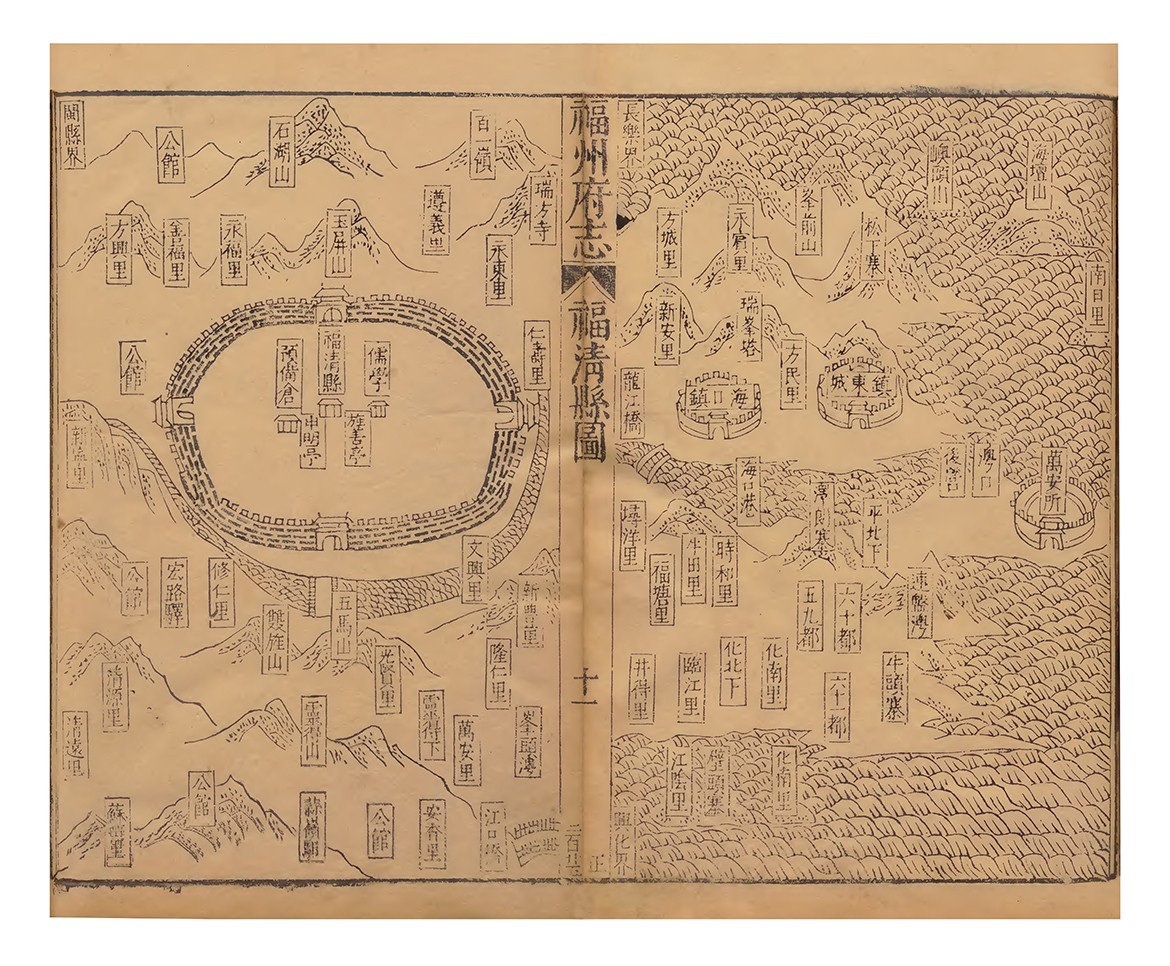 福州府志
福清縣圖
十一
長樂界
海壇山
嶼頭山
南日里
方城里
永賓里
峯前山
松下寨
新安里
瑞峯塔
方民里
海口鎮
鎮東城
龍江橋
後營
澳口
萬安所
海口港
平北下
時和里
牛田里
福塘里
五九都
六十都
牛頭寨
六十一都
化南里
化北下
臨江里
井得里
江陰里
壁頭寨
化南里
興化界
閩縣界
公館
石湖山
百嶺
瑞方寺
遵義里
永東里
方興里
金福里
永福里
玉屏山
仁壽里
公館
預備倉
福清縣
儒學
申明亭
旌善亭
文興里
公館
宏路驛
修仁里
雙旌山
五馬山
新豊里
隆仁里
光賢里
清源里
清遠里
萬安里
公館
公館
安香里
江口橋